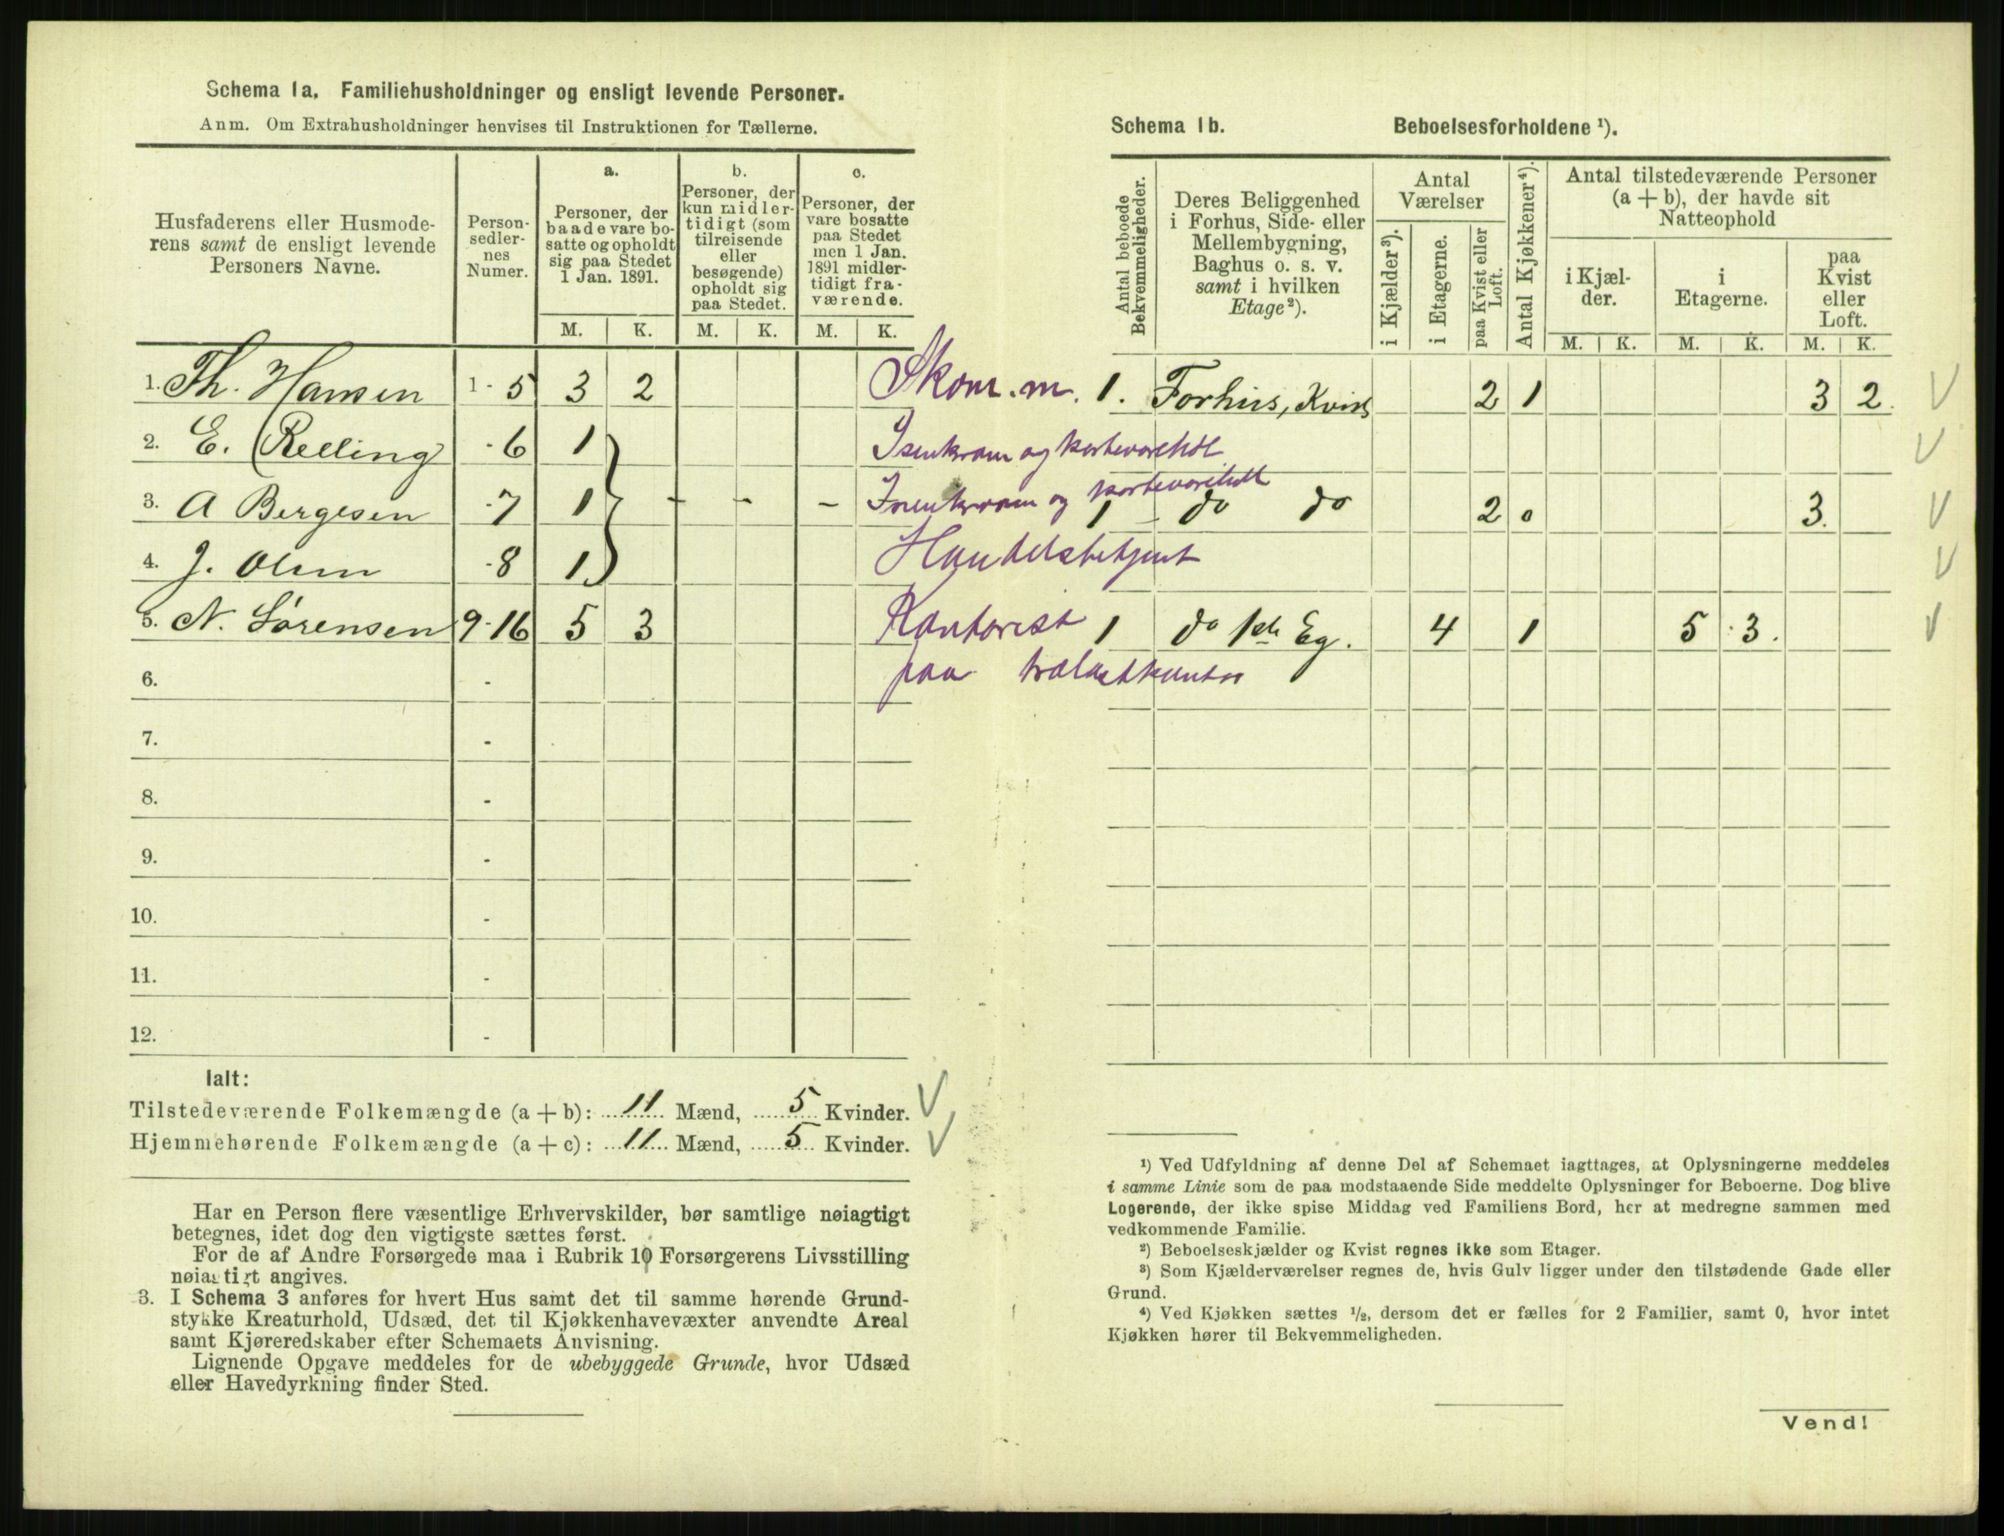 Schema 1a. Familiehusholdninger og ensligt levende Personer.
Anm. Om Extrahusholdninger henvises til Instruktionen for Tællerne.
Husfaderens eller Husmoderens samt de ensligt levende Personers Navne.
Personsedlernes Numer.
a. Personer, der baade vare bosatte og opholdt sig paa Stedet 1 Jan. 1891.
b. Personer, der kun midlertidigt (som tilreisende eller besøgende) opholdt sig paa Stedet.
c. Personer, der vare bosatte paa Stedet men 1 Jan. 1891 midlertidigt fraværende.
M. K. M. K. M. K.
1. Th. Hansen 1 - 5 3 2 Skom.m.
2. E. Relling - 6 1 Isenkram og kortevarehdl
3. A Bergesen - 7 1 - - - Isenkram og kortevarehdl
4. J. Olsen - 8 1 Handelsbetjent
5. N. Sørensen 9 - 16 5 3 Kontorist
paa trælastkontor
6. -
7. -
8. -
9. -
10. -
11. -
12. -
Ialt:
Tilstedeværende Folkemængde (a + b): 11 Mænd, 5 Kvinder.
Hjemmehørende Folkemængde (a + c): 11 Mænd, 5 Kvinder.
Har en Person flere væsentlige Erhvervskilder, bør samtlige nøiagtigt
betegnes, idet dog den vigtigste sættes først.
For de af Andre Forsørgede maa i Rubrik 10 Forsørgerens Livsstilling
nøiagtigt angives.
3. I Schema 3 anføres for hvert Hus samt det til samme hørende Grund-
stykke Kreaturhold, Udsæd, det til Kjøkkenhavevæxter anvendte Areal
samt Kjøreredskaber efter Schemaets Anvisning.
Lignende Opgave meddeles for de ubebyggede Grunde, hvor Udsæd
eller Havedyrkning finder Sted.
Schema 1b. Beboelsesforholdene ¹).
Antal beboede Bekvemmeligheder.
Deres Beliggenhed i Forhus, Side- eller Mellembygning, Baghus o. s. v. samt i hvilken Etage²).
Antal Værelser
i Kjælder³). i Etagerne. paa Kvist eller Loft.
Antal Kjøkkener⁴).
Antal tilstedeværende Personer (a + b), der havde sit Natteophold
i Kjælder. i Etagerne. paa Kvist eller Loft.
M. K. M. K. M. K.
1. Forhus, Kvist 2 1 3 2.
1 - do do 2 0 3.
1 do 1ste Eg. 4 1 5 3.
¹) Ved Udfyldning af denne Del af Schemaet iagttages, at Oplysningerne meddeles
i samme Linie som de paa modstaaende Side meddelte Oplysninger for Beboerne. Dog blive
Logerende, der ikke spise Middag ved Familiens Bord, her at medregne sammen med
vedkommende Familie.
²) Beboelseskjælder og Kvist regnes ikke som Etager.
³) Som Kjælderværelser regnes de, hvis Gulv ligger under den tilstødende Gade eller
Grund.
⁴) Ved Kjøkken sættes ½, dersom det er fælles for 2 Familier, samt 0, hvor intet
Kjøkken hører til Bekvemmeligheden.
Vend!